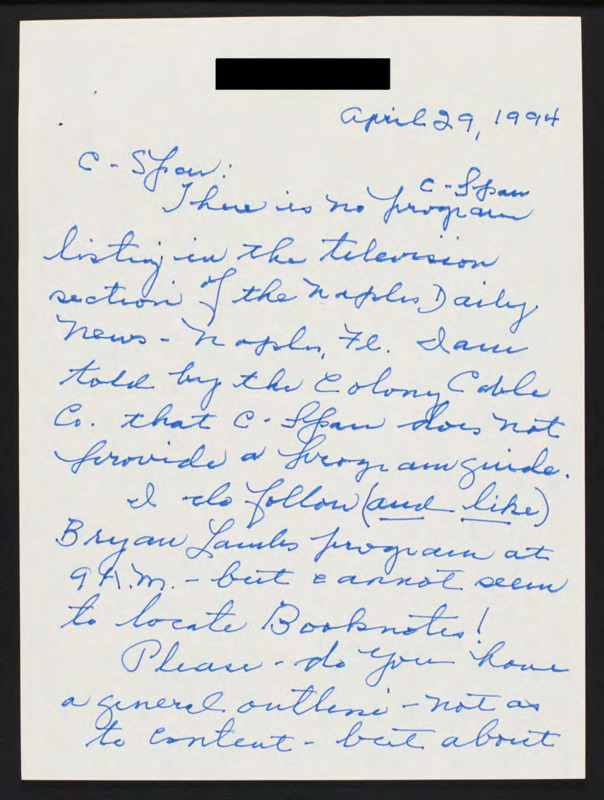 April 29, 1994
C-Span:
There is no C-Span program
listing in the television
section of the Naples Daily
News - Naples, Fl. I am
told by the Colony Cable
Co. that C-Span does not
provide a program guide.
I do follow (and like)
Bryan Lambs program at
9 A.M. - but cannot seem
to locate Booknotes!
Please - do you have
a general outline - not as
to content - but about